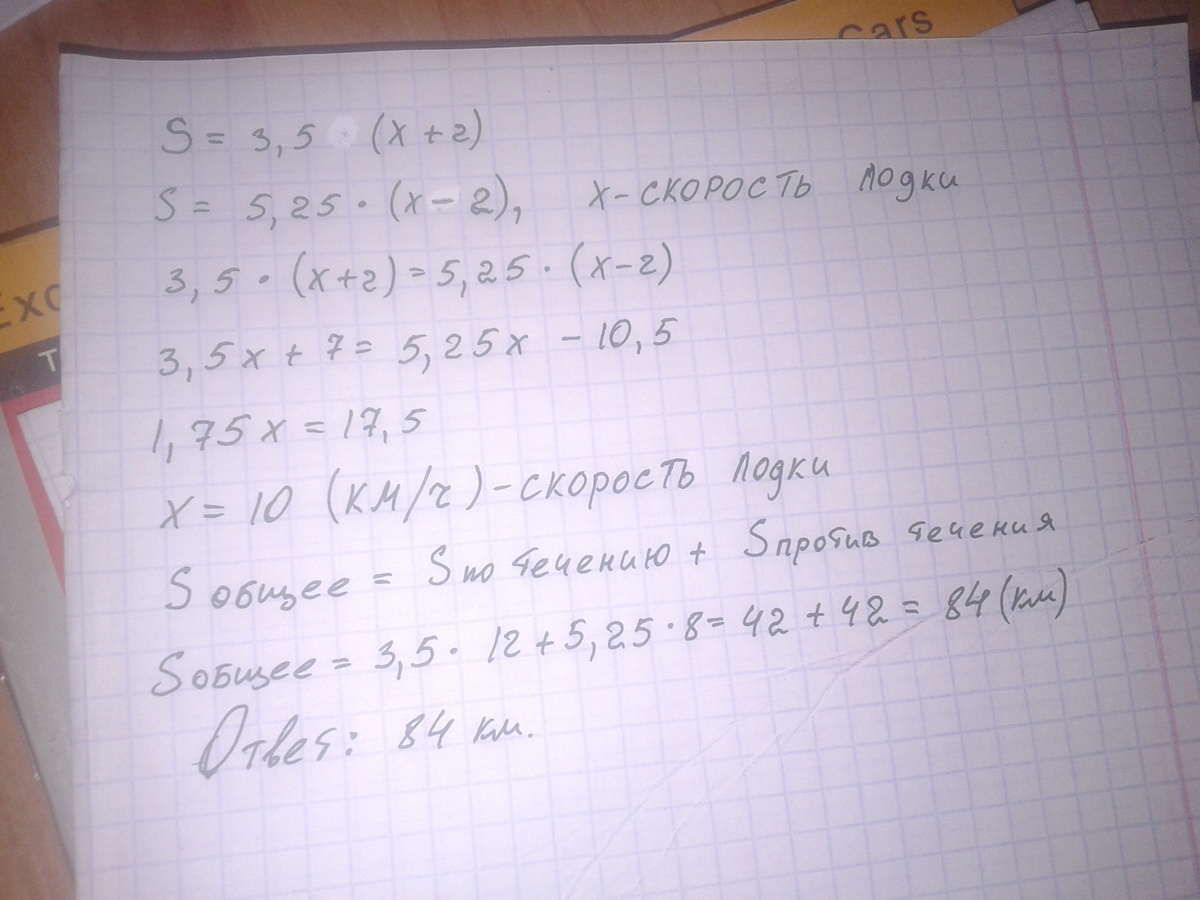 Cars
S = 3,5 (x + 2)
S = 5,25 · (x - 2), x - скорость лодки
3,5 · (x + 2) = 5,25 · (x - 2)
3,5x + 7 = 5,25x - 10,5
1,75x = 17,5
x = 10 (км/ч) - скорость лодки
S общее = S по течению + S против течения
S общее = 3,5 · 12 + 5,25 · 8 = 42 + 42 = 84 (км)
Ответ: 84 км.